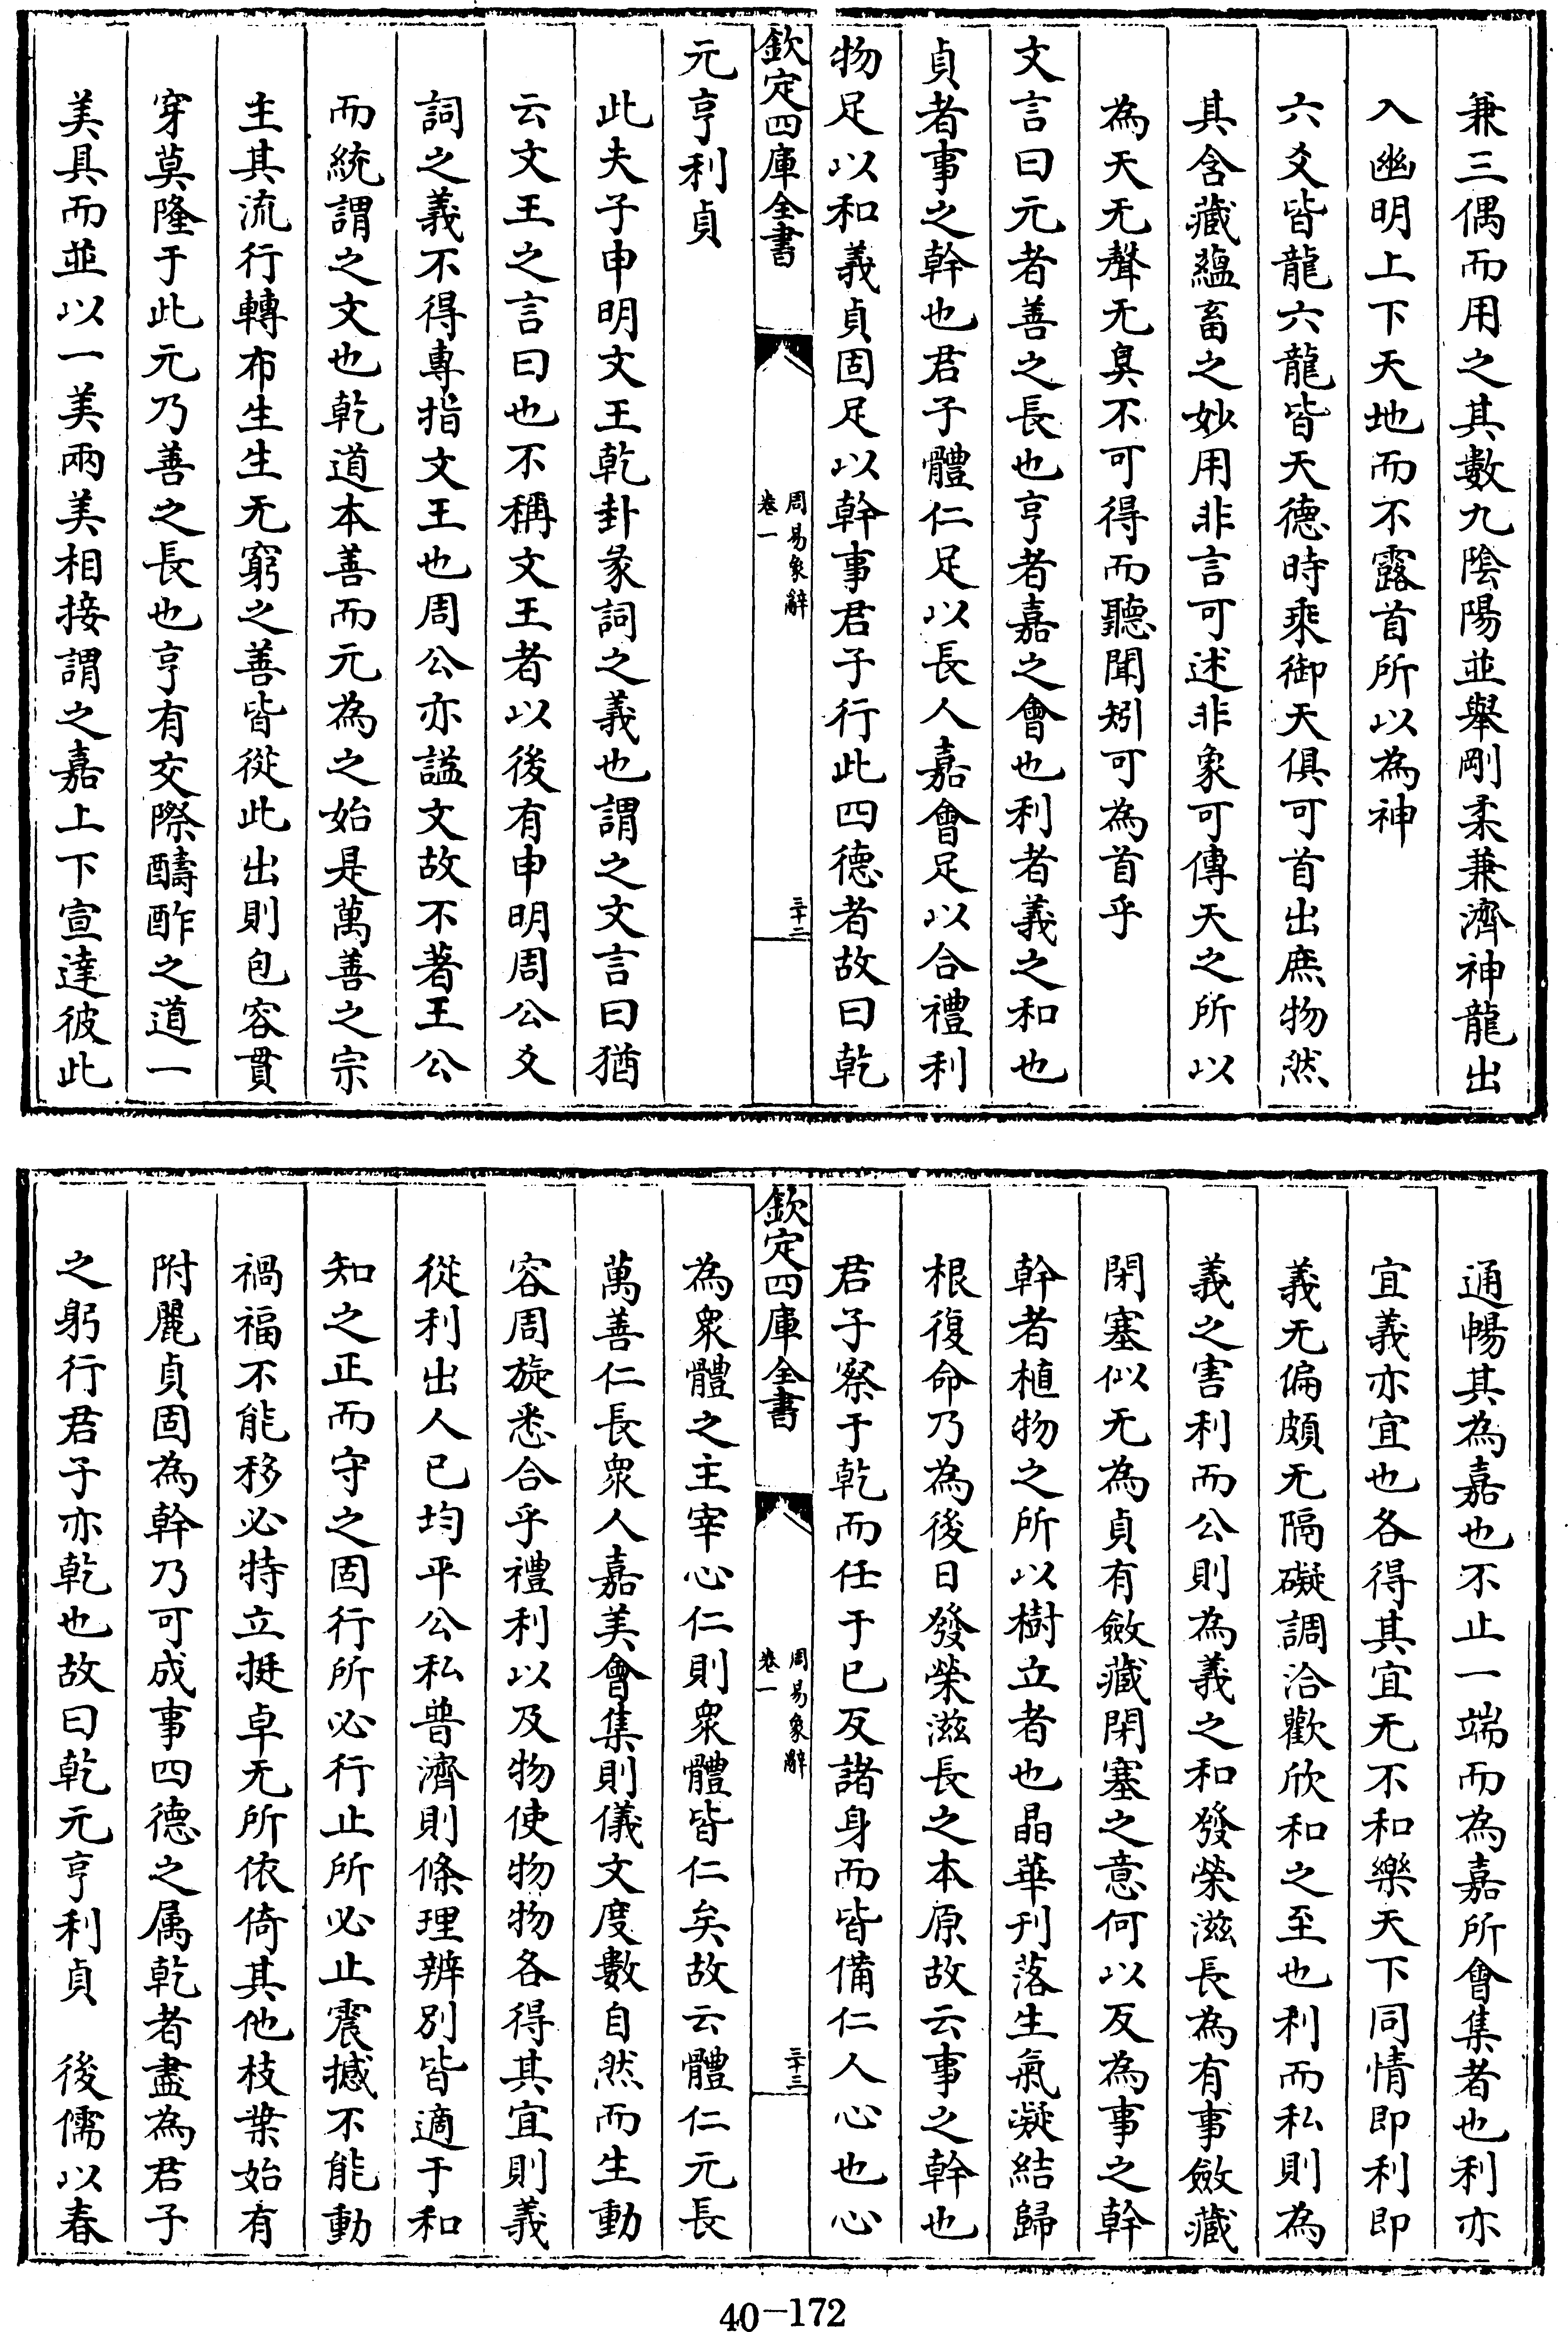 兼三偶而用之其數九陰陽並舉剛柔兼濟神龍出
入幽明上下天地而不露首所以為神
六爻皆龍六龍皆天德時乗御天俱可首出庶物然
其含藏蘊畜之妙用非言可述非象可傳天之所以
為天无聲无臭不可得而聽聞矧可為首乎
文言曰元者善之長也亨者嘉之會也利者義之和也
貞者事之幹也君子體仁足以長人嘉會足以合禮利
物足以和義貞固足以幹事君子行此四德者故曰乾
欽定四庫全書
周易象辭
卷一
三十二
元亨利貞
此夫子申明文王乾卦彖詞之義也謂之文言曰猶
云文王之言曰也不稱文王者以後有申明周公爻
詞之義不得專指文王也周公亦諡文故不著王公
而統謂之文也乾道本善而元為之始是萬善之宗
主其流行轉布生生无窮之善皆從此出則包容貫
穿莫隆于此元乃善之長也亨有交際醻酢之道一
美具而並以一美兩美相接謂之嘉上下宣達彼此
通暢其為嘉也不止一端而為嘉所會集者也利亦
宜義亦宜也各得其宜无不和樂天下同情即利即
義无偏頗无隔礙調洽歡欣和之至也利而私則為
義之害利而公則為義之和發榮滋長為有事斂藏
閉塞似无為貞有斂藏閉塞之意何以反為事之幹
幹者植物之所以樹立者也晶華刊落生氣凝結歸
根復命乃為後日發榮滋長之本原故云事之幹也
君子察于乾而任于已反諸身而皆備仁人心也心
欽定四庫全書
周易象辭
卷一
三十三
為衆體之主宰心仁則衆體皆仁矣故云體仁元長
萬善仁長衆人嘉美會集則儀文度數自然而生動
容周旋悉合乎禮利以及物使物物各得其宜則義
從利出人已均平公私普濟則條理辨别皆適于和
知之正而守之固行所必行止所必止震撼不能動
禍福不能移必特立挺卓无所依倚其他枝葉始有
附麗貞固為幹乃可成事四德之属乾者盡為君子
之躬行君子亦乾也故曰乾元亨利貞　後儒以春
40-172